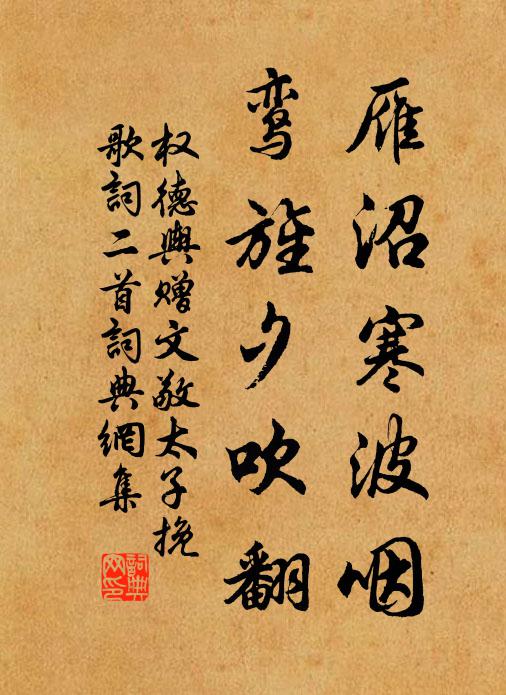 雁沼寒波咽
鸾旌夕吹翻
权德舆赠文敬太子挽
歌詞二首詞典網集
詞典网印